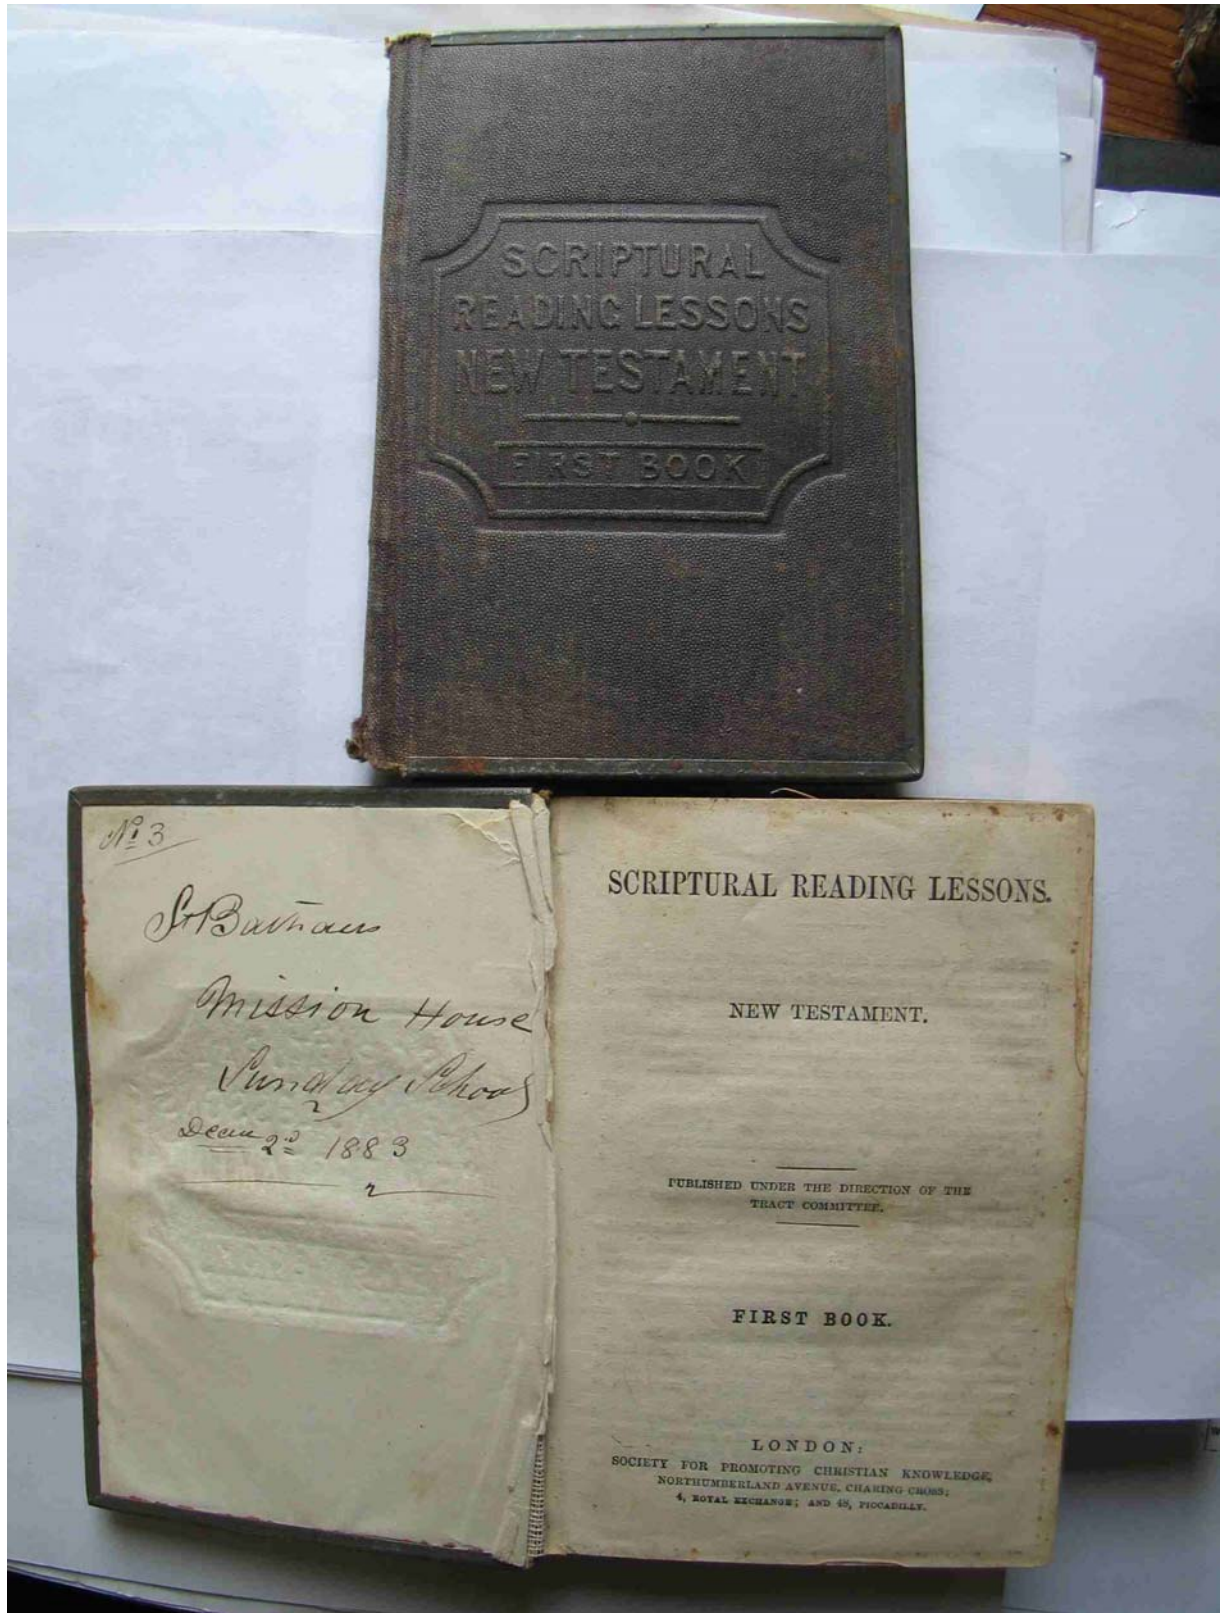 SCRIPTURAL
READING LESSONS
NEW TESTAMENT
FIRST BOOK
No 3
St Bathans
Mission House
Sunday School
Decem 2nd 1883
SCRIPTURAL READING LESSONS.
NEW TESTAMENT.
PUBLISHED UNDER THE DIRECTION OF THE
TRACT COMMITTEE.
FIRST BOOK.
LONDON:
SOCIETY FOR PROMOTING CHRISTIAN KNOWLEDGE,
NORTHUMBERLAND AVENUE, CHARING CROSS;
4, ROYAL EXCHANGE; AND 48, PICCADILLY.